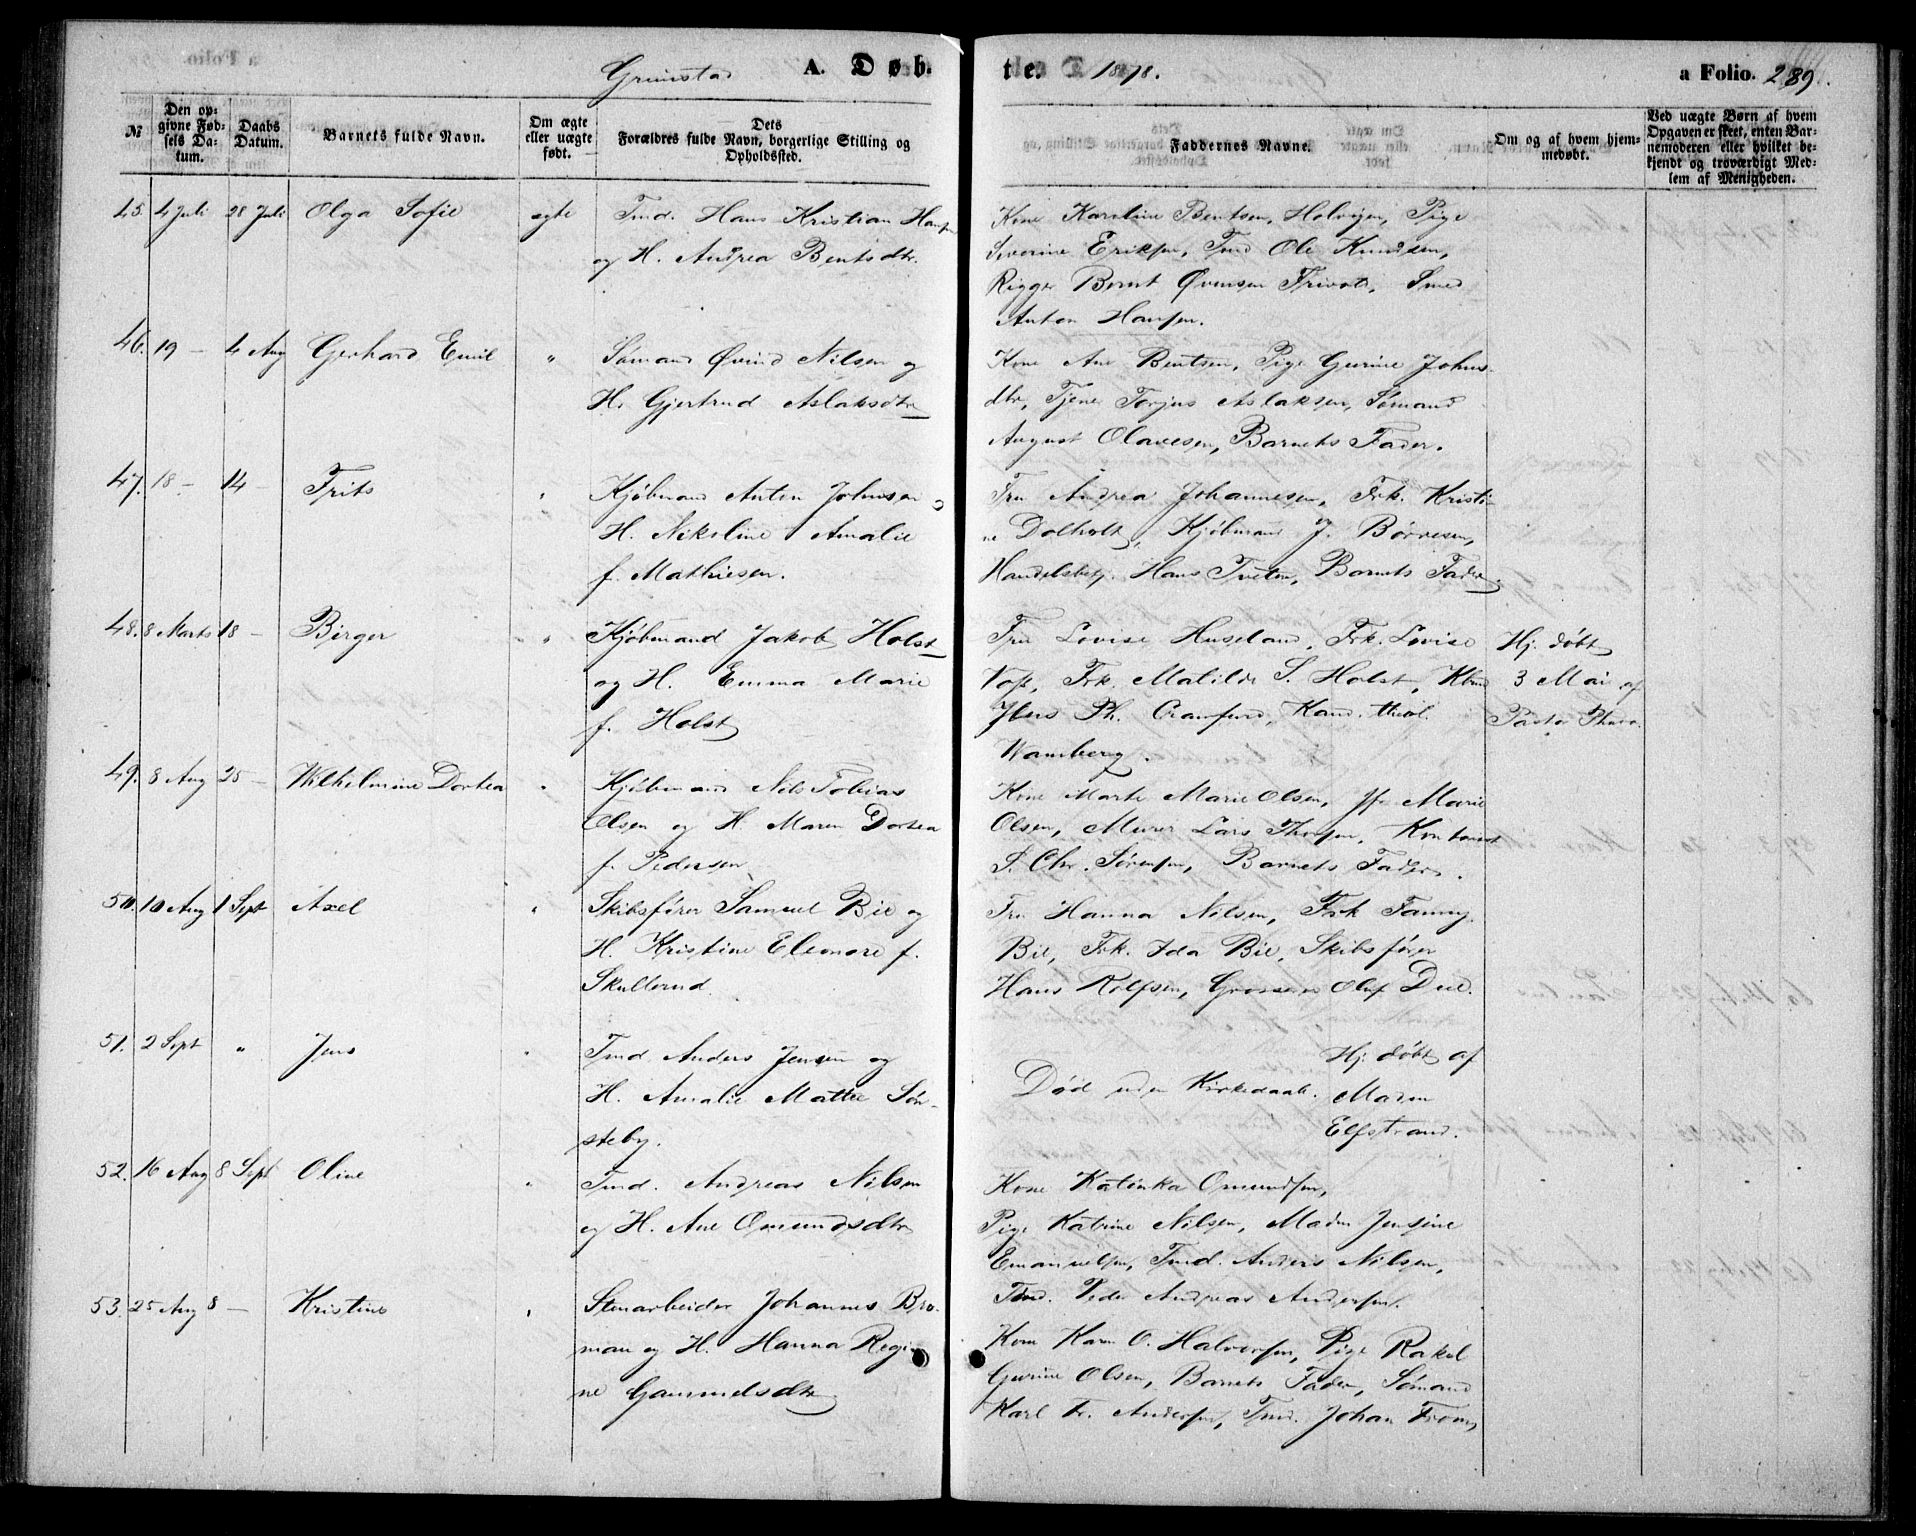 Grimstad A. Døb- te. 1878. a Folio. 289.
№ Den op-
givne Fød-
sels Da-
tum. Daabs
Datum. Barnets fulde Navn. Om ægte
eller uægte
født. Dets
Forældres fulde Navn, borgerlige Stilling og
Opholdssted. Faddernes Navne. Om og af hvem hjem-
medøbt. Ved uægte Børn af hvem
Opgaven er skeet, enten Bar-
nemoderen eller hvilket be-
kjendt og troværdigt Med-
lem af Menigheden.
45. 4 Juli 28 Juli Olga Sofie egte Tmd. Hans Kristian Hansen
og H. Andrea Bentsdtr.
Kone Karoline Bentsen, Holvigen, Pige
Severine Eriksen, Tmd Ole Knudsen,
Rigger Bernt Øvensen Trivolt, Smed
Anton Hansen.
46. 19 — 4 Aug Gerhard Emil " Sømand Øvind Nilsen og
H. Gjertrud Aslaksdtr
Kone Ane Bentsen, Pige Gurine Johns-
dtr, Tjener Torjus Aslaksen, Sømand
August Olavesen, Barnets Fader.
47. 18 — 14 — Frits " Kjøbmand Anton Johnsen og
H. Nikoline Amalie
f. Mathiesen.
Fru Andrea Johannesen, Frk. Kristi-
ne Dolholt, Kjøbmand J. Børresen,
Handelsbetj. Hans Tveten, Barnets Fader.
48. 8 Marts 18 — Birger " Kjøbmand Jakob Holst
og H. Emma Marie
f. Holst
Fru Lovise Huseland, Frk. Lovise
Voss, Frk. Matilde S. Holst, Kbmd
Ph. Cranfurd, Kand. theol.
Wamberg.
Hj. døbt
3 Mai af
Pastor
49. 8 Aug 25 — Wilhelmine Dortea " Kjøbmand Nils Tobias
Olsen og H. Maren Dortea
f. Pedersen
Kone Marte Marie Olsen, Jfr Marie
Olsen, Murer Lars Thorsen, Kontorist
S. Chr. Sørensen, Barnets Fader.
50. 10 Aug 1 Sept Axel " Skibsfører Samuel Bie og
H. Kristine Eleonore f.
Skullerud.
Fru Hanna Nilsen, Frk Fanny
Bie, Frk. Ida Bie, Skibsfører
Hans Rolfsen, Grosserer Oluf Due.
51. 2 Sept " Jens " Tmd. Anders Jensen og
H. Amalie Mattea Søn-
steby.
Død uden Kirkedaab.
Hj. døbt af
Madm
Elfstrand.
52. 16 Aug 8 Sept Oline " Tmd. Andreas Nilsen
og H. Ane Omundsdtr
Kone Katinka Omundsen,
Pige Katrine Nilsen, Madm Jensine
Emanuelsen, Tmd. Anders Nilsen,
Tmd. Peder Andreas Andersen.
53. 25 Aug 8 — Kristine " Stenarbeider Johannes Bro-
man og H. Hanna Regi-
ne Gammelsdtr
Kone Karen O. Halvorsen, Pige Rakel
Gurine Olsen, Barnets Fader, Sømand
Karl Fr. Andersen, Tmd. Johan From,